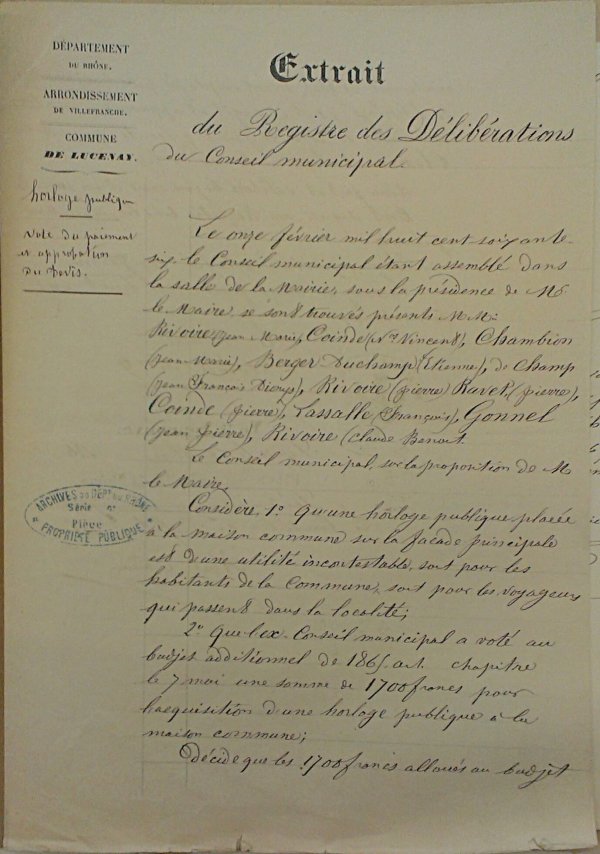 DÉPARTEMENT
DU RHÔNE.
ARRONDISSEMENT
DE VILLEFRANCHE.
COMMUNE
DE LUCENAY.
horloge publique
Vote du paiement
et approbation
du Devis.
Extrait
du Registre des Délibérations
du Conseil municipal.
Le onze février mil huit cent soixante-
six le Conseil municipal étant assemblé dans
la salle de la Mairie, sous la présidence de Mr
le Maire, se sont trouvés présents M.M.
Rivoire (Jean Marie), Coinde (Vincent), Chambion
(Jean Marie), Berger Duchamp (Etienne), de Champ
(Jean François Dionys), Rivoire (Pierre) Ravet (Pierre),
Coinde (Pierre), Lassalle (François), Gonnet
(Jean Pierre), Rivoire (Claude Benoit
Le Conseil municipal, sur la proposition de M
le Maire,
Considère, 1° qu'une horloge publique placée
à la maison commune sur la façade principale
est d'une utilité incontestable, soit pour les
habitants de la Commune, soit pour les voyageurs
qui passent dans la localité;
2° Que l'ex-Conseil municipal a voté au
budjet additionnel de 1865 art. chapitre
le 7 mai une somme de 1700 francs pour
l'acquisition d'une horloge publique à la
maison commune;
Décide que les 1700 francs alloués au budjet
ARCHIVES DU DÉPT DU RHÔNE
Série n°
Pièce
PROPRIÉTÉ PUBLIQUE